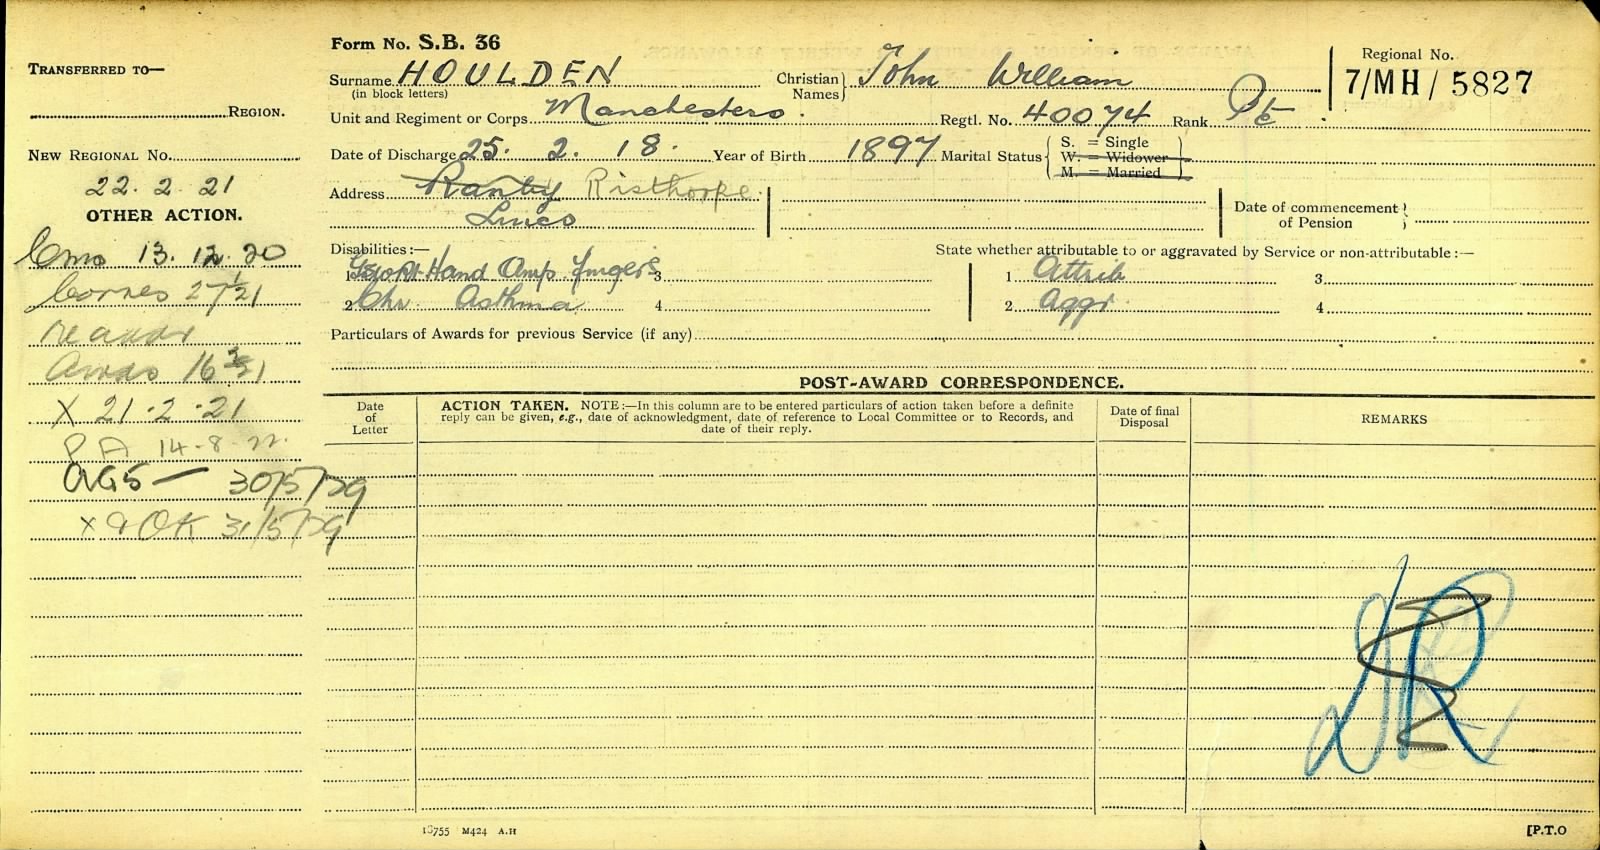 TRANSFERRED TO—
REGION.
NEW REGIONAL NO.
22.2.21
OTHER ACTION.
13.12.20
27/1/21
Awds 16/2/21
X 21.2.21
P A 14.8.22.
AG5 — 30/5/29
X OK 31/5/29
Form No. S.B. 36
Surname HOULDEN
(in block letters)
Christian Names John William
Regional No.
7/MH/5827
Unit and Regiment or Corps Manchesters.
Regtl. No. 40074 Rank Pte
Date of Discharge 25.2.18. Year of Birth 1897 Marital Status
S. = Single
W. = Widower
M. = Married
Address Ranby Risthorpe.
Lincs
Date of commencement of Pension
Disabilities:—
State whether attributable to or aggravated by Service or non-attributable:—
1 Hand Amp fingers 3
1 Attrib 3
2 Chr Asthma 4
2 Aggr. 4
Particulars of Awards for previous Service (if any)
POST-AWARD CORRESPONDENCE.
Date of Letter
ACTION TAKEN. NOTE:—In this column are to be entered particulars of action taken before a definite
reply can be given, e.g., date of acknowledgment, date of reference to Local Committee or to Records, and
date of their reply.
Date of final Disposal
REMARKS
18755 M424 A.H
[P.T.O